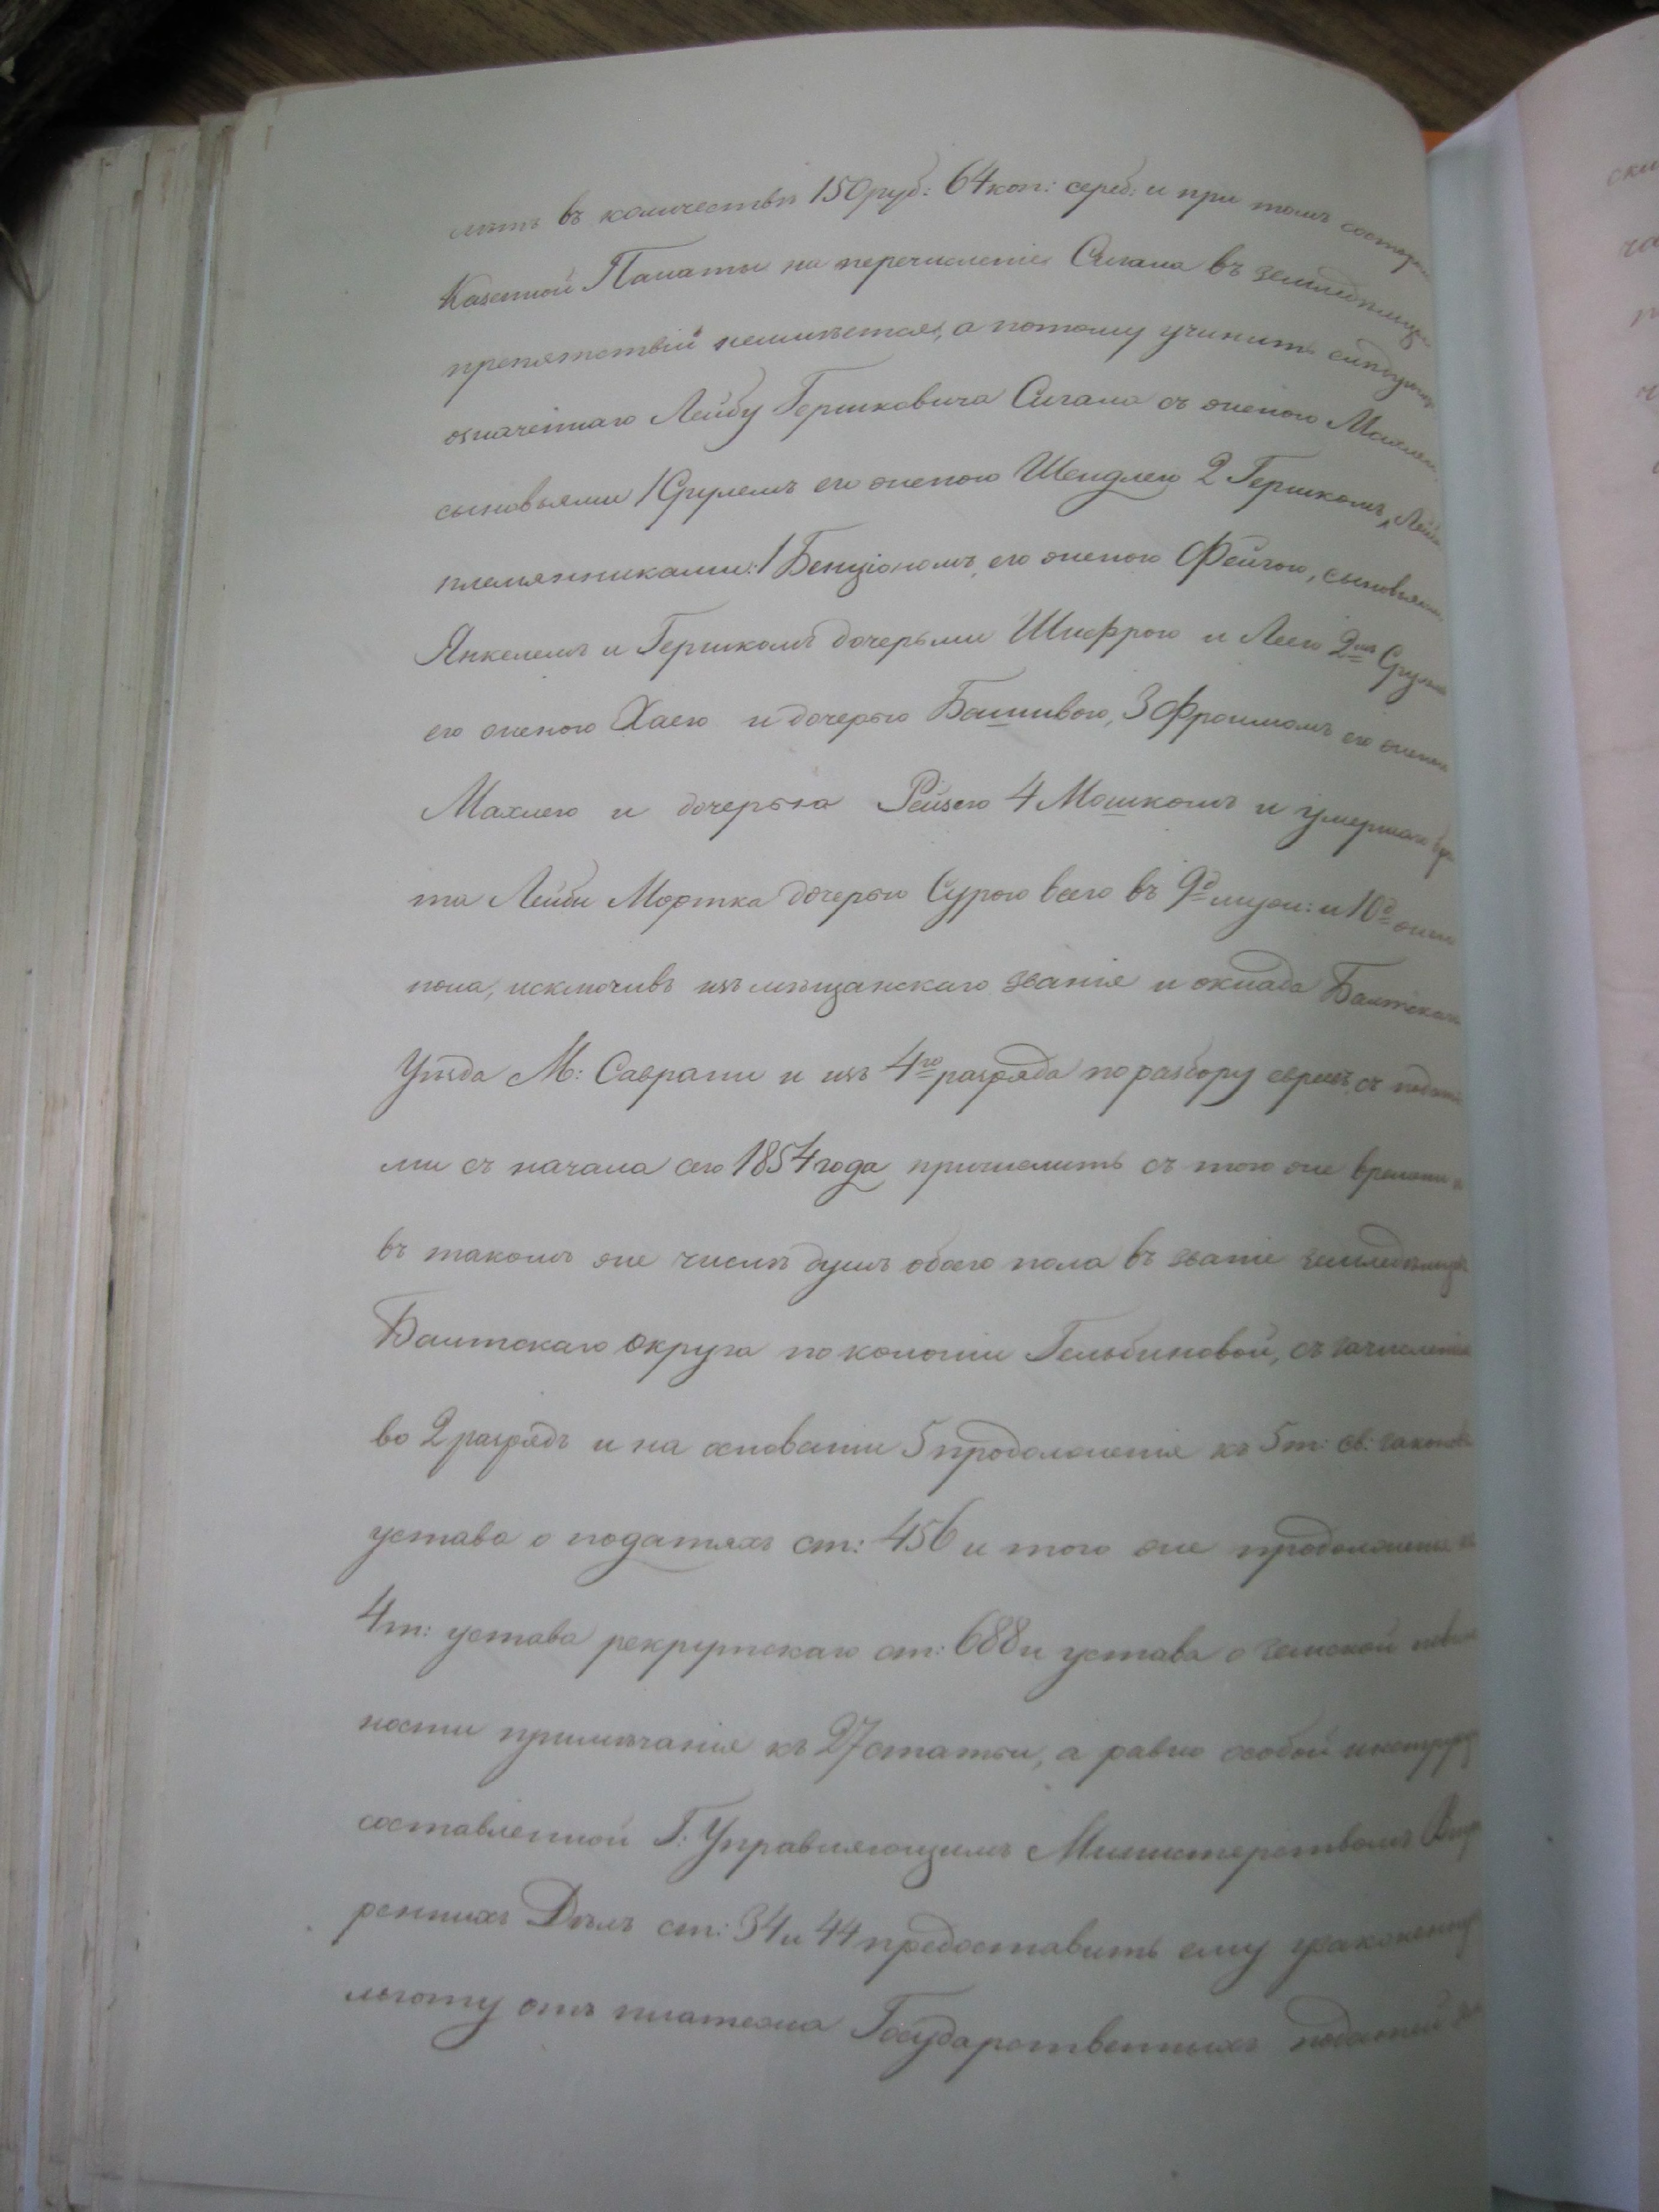 лить въ количествѣ 150 руб: 64 коп: сереб: и при томъ со стороны
Казенной Палаты на перечисленіе Сигала въ земледѣльцы
препятствій неимѣется, а потому учинить слѣдующее
означеннаго Лейбу Гершковича Сигала съ женою Малкою
сыновьями 1 Срулемъ его женою Шейдлею 2 Гершкомъ, Лейбы
племянниками: 1 Бенціономъ, его женою Фейгою, сыновьями
Янкелемъ и Гершкомъ дочерьми Шифрою и Леею 2мъ Срулемъ
его женою Хаею и дочерью Башивою, 3 Фроимомъ его женою
Махлею и дочерью Рейзею 4 Мошкомъ и умершаго бра
та Лейбы Мортка дочерью Сурою всего въ 9д мужс: и 10д женс
пола, исключивъ изъ мѣщанскаго званія и оклада Балтскаго
Уѣзда М: Саврани и изъ 4го разряда по разбору евреевъ съ податя
ми съ начала сего 1854 года причислить съ того же времени и
въ такомъ же числѣ душъ обоего пола въ званіе земледѣльцевъ
Балтскаго округа по колоніи Гельбиновой, съ зачисленіемъ
во 2 разрядъ и на основаніи 5 продолженія къ 5 т: св: законовъ
устава о податяхъ ст: 456 и того же продолженія къ
4 т: устава рекрутскаго ст: 688 и устава о земской повин
ности примѣчанія къ 27 статьи, а равно особой инструкціи
составленной Г: Управляющимъ Министерствомъ Внут
реннихъ Дѣлъ ст: 34 и 44 предоставить ему узаконенную
льготу отъ платежа Государственныхъ податей